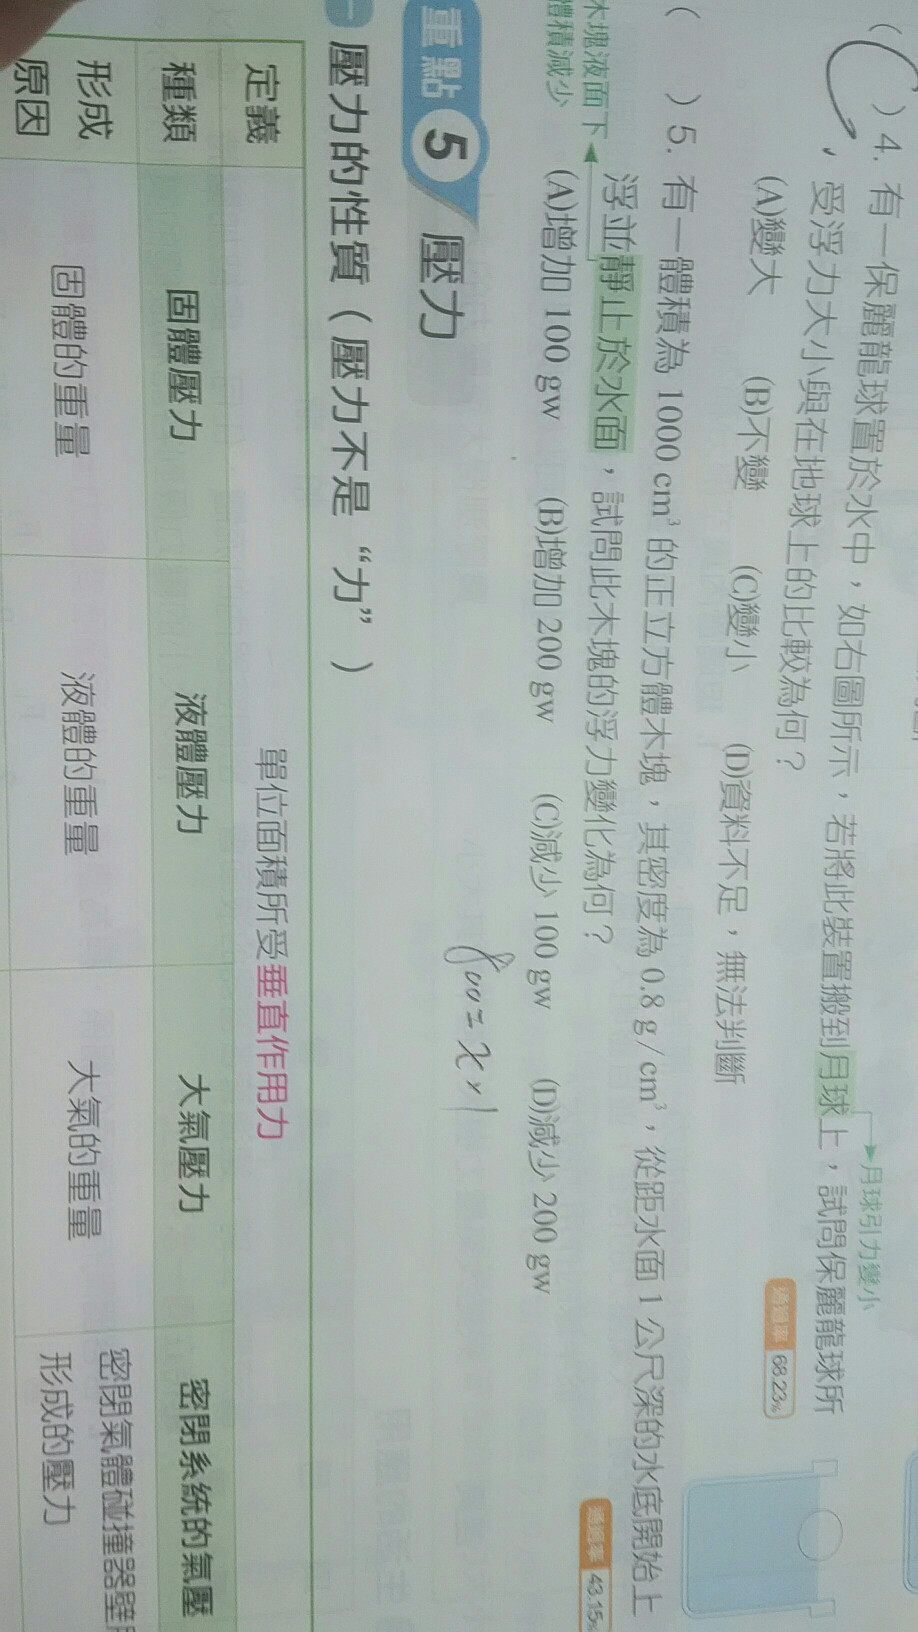 ( ) 4. 有一保麗龍球置於水中，如右圖所示，若將此裝置搬到月球上，試問保麗龍球所
受浮力大小與在地球上的比較為何？
月球引力變小
(A)變大 (B)不變 (C)變小 (D)資料不足，無法判斷
通過率 68.23%
( ) 5. 有一體積為 1000 cm³ 的正立方體木塊，其密度為 0.8 g/cm³，從距水面 1 公尺深的水底開始上
浮並靜止於水面，試問此木塊的浮力變化為何？
通過率 43.15%
木塊液面下
體積減少
(A)增加 100 gw (B)增加 200 gw (C)減少 100 gw (D)減少 200 gw
800=X×1
重點 5 壓力
一 壓力的性質（壓力不是“力”）
定義 單位面積所受垂直作用力
種類 固體壓力 液體壓力 大氣壓力 密閉系統的氣壓
形成
原因
固體的重量 液體的重量 大氣的重量
密閉氣體碰撞器壁
形成的壓力